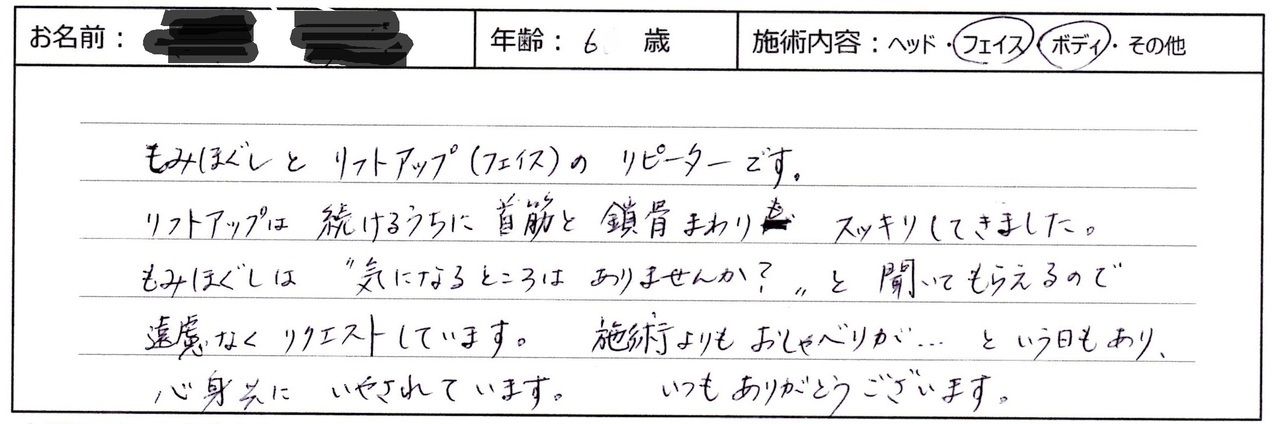 お名前： 年齢：6 歳 施術内容：ヘッド・フェイス・ボディ・その他
もみほぐしと リフトアップ(フェイス)の リピーターです。
リフトアップは 続けるうちに 首筋と 鎖骨まわりも スッキリしてきました。
もみほぐしは "気になるところは ありませんか？〟と 聞いてもらえるので
遠慮なく リクエストしています。 施術よりも おしゃべりが… と いう日もあり、
心身共に いやされています。 いつも ありがとうございます。